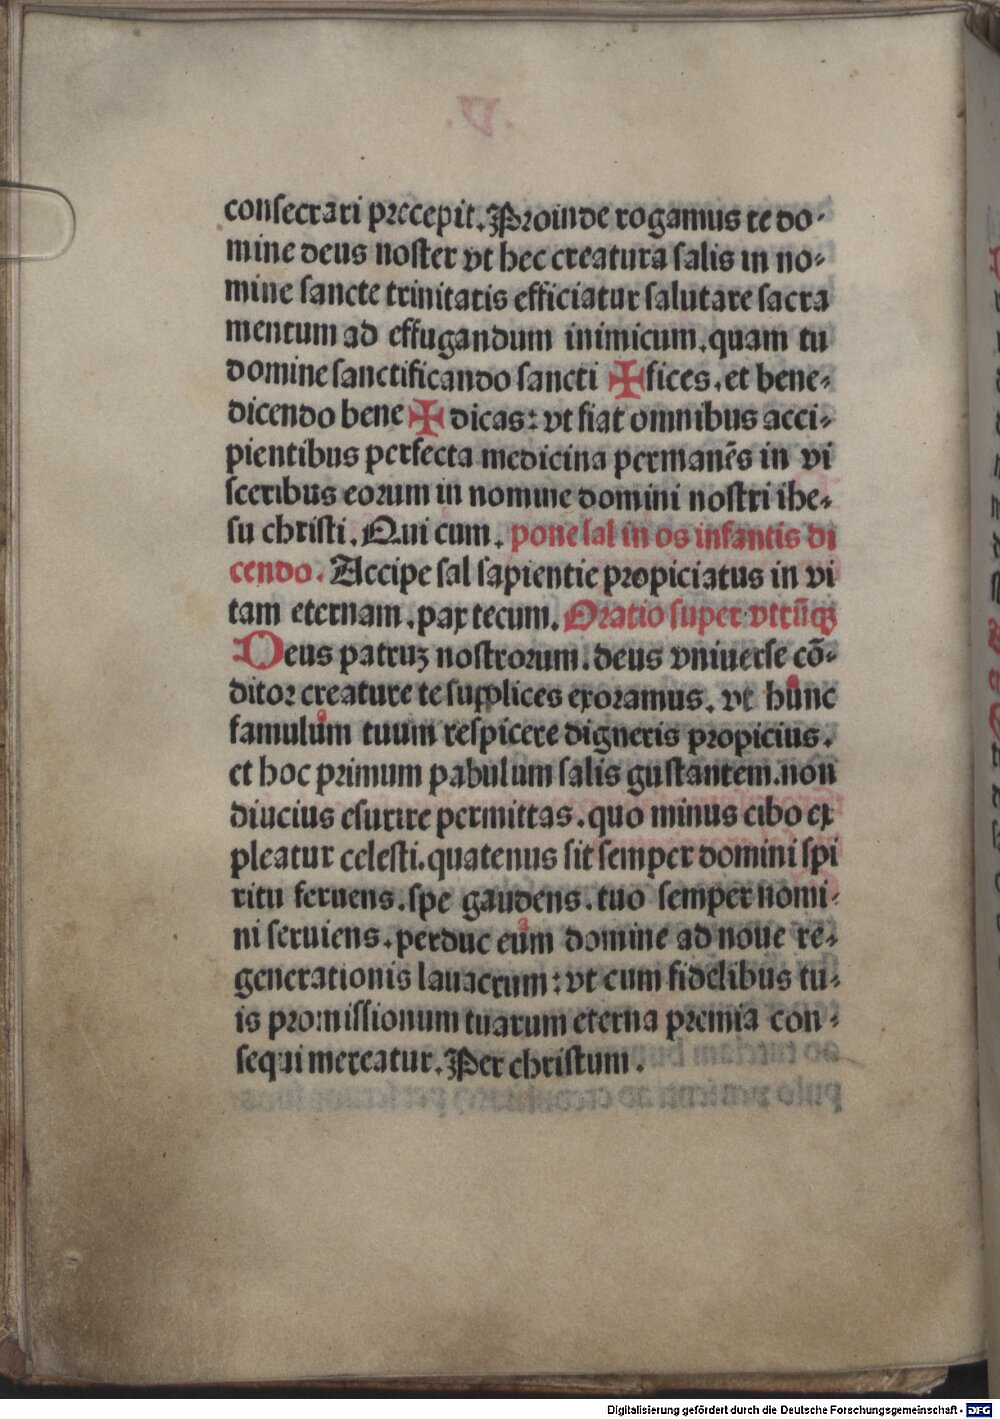 consecrari precepit. Proinde rogamus te do-
mine deus noster vt hec creatura salis in no-
mine sancte trinitatis efficiatur salutare sacra
mentum ad effugandum inimicum. quam tu
domine sanctificando sancti ✠ fices. et bene-
dicendo bene ✠ dicas: vt fiat omnibus acci-
pientibus perfecta medicina permanēs in vi
sceribus eorum in nomine domini nostri ihe-
su christi. Qui cum. pone sal in os infantis di
cendo. Accipe sal sapientie propiciatus in vi
tam eternam. pax tecum. Oratio super vtrūqꝫ
Deus patruꝫ nostrorum. deus vniuerse cō-
ditor creature te supplices exoramus. vt hunc
famulum tuum respicere digneris propicius.
et hoc primum pabulum salis gustantem. non
diucius esurire permittas. quo minus cibo ex
pleatur celesti. quatenus sit semper domini spi
ritu feruens. spe gaudens. tuo semper nomi-
ni seruiens. perduc eum domine ad noue re-
generationis lauacrum: vt cum fidelibus tu-
is promissionum tuarum eterna premia con-
sequi mereatur. Per christum.
Digitalisierung gefördert durch die Deutsche Forschungsgemeinschaft - DFG